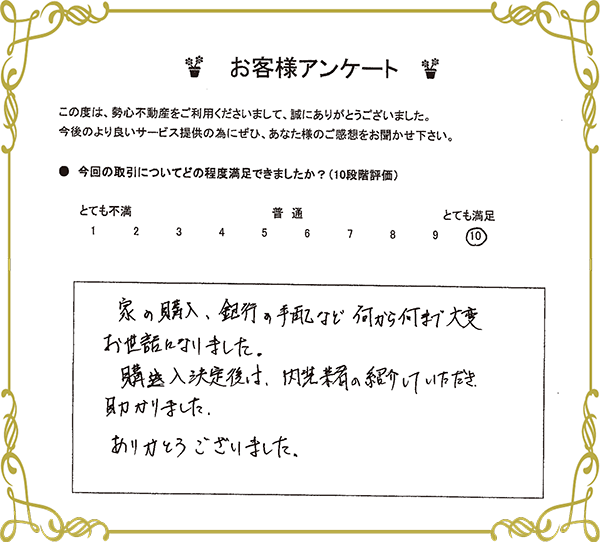 お客様アンケート
この度は、勢心不動産をご利用くださいまして、誠にありがとうございました。
今後のより良いサービス提供の為にぜひ、あなた様のご感想をお聞かせ下さい。
● 今回の取引についてどの程度満足できましたか？（10段階評価）
とても不満 普通 とても満足
1 2 3 4 5 6 7 8 9 10
家の購入、銀行の手配など何から何まで大変
お世話になりました。
購入決定後は、内装業者の紹介していただき
助かりました。
ありがとうございました。